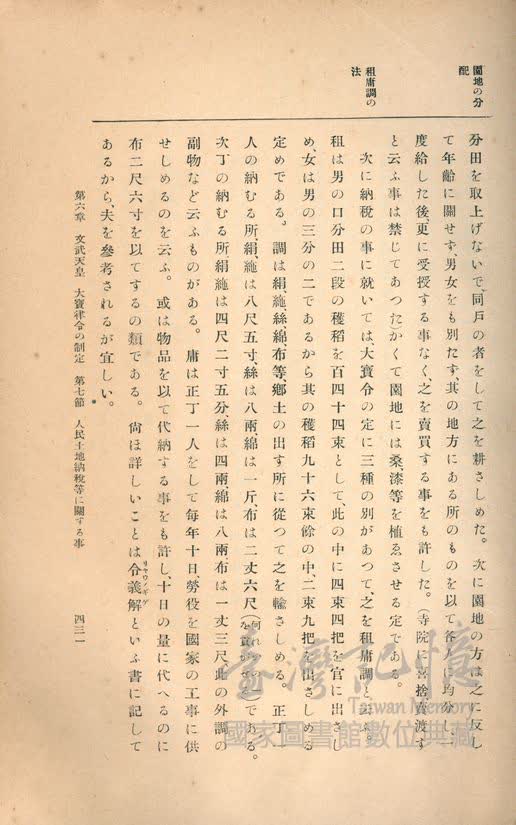 園地の分
配
租庸調の
法
分田を取上げないで、同戸の者をして之を耕さしめた。次に園地の方は之に反し
て年齡に關せず、男女をも別たず、其の地方にある所のものを以て各人に均分し、一
度給した後、更に受授する事なく、之を賣買する事をも許した。(寺院に喜捨、賣渡す
と云ふ事は禁じてあつた)かくて園地には桑、漆等を植ゑさせる定である。
次に納稅の事に就いては、大寶令の定に三種の別があつて、之を租庸調と云ふ。
租は男の口分田二段の穫稻を百四十四束として、此の中に四束四把を官に出さし
め、女は男の三分の二であるから其の穫稻九十六束餘の中、二束九把を出さしめる
定めである。調は絹、絁、絲、綿、布等、鄕土の出す所に從つて之を輸さしめる。正丁一
人の納むる所、絹、絁は八尺五寸、絲は八兩、綿は一斤、布は二丈六尺(何れかを貢がせる)である。
次丁の納むる所、絹、絁は四尺二寸五分、絲は四兩、綿は八兩、布は一丈三尺、此の外調の
副物など云ふものがある。庸は正丁一人をして每年十日、勞役を國家の工事に供
せしめるのを云ふ。或は物品を以て代納する事をも許し、十日の量に代へるのに
布二尺六寸を以てするの類である。尙ほ詳しいことは令義解といふ書に記して
リヤウノギゲ
あるから、夫を參考されるが宜しい。
第六章 文武天皇 大寶律令の制定 第七節 人民土地納稅等に關する事
四三一
臺灣記憶
Taiwan Memory
國家圖書館數位典藏